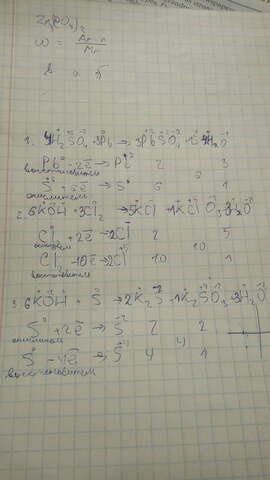 Zn(PO₄)₂
W = Ar·n / Mr
а б
1. 4H₂SO₄ + 3Pb → 3PbSO₄ + S + 4H₂O
Pb⁰ - 2e → Pb⁺² 2 3
восстановитель 6
S⁺⁶ + 6e → S⁰ 6 1
окислитель
2. 6KOH + 3Cl₂ → 5KCl + 1KClO₃ + 3H₂O
Cl₂ + 2e → 2Cl⁻ 2 5
10
Cl₂ - 10e → 2Cl⁺⁵ 10 1
восстановитель
3. 6KOH + S → 2K₂S + 1K₂SO₃ + 3H₂O
S⁰ + 2e → S⁻² 2 2
окислитель 4
S⁰ - 4e → S⁺⁴ 4 1
восстановитель